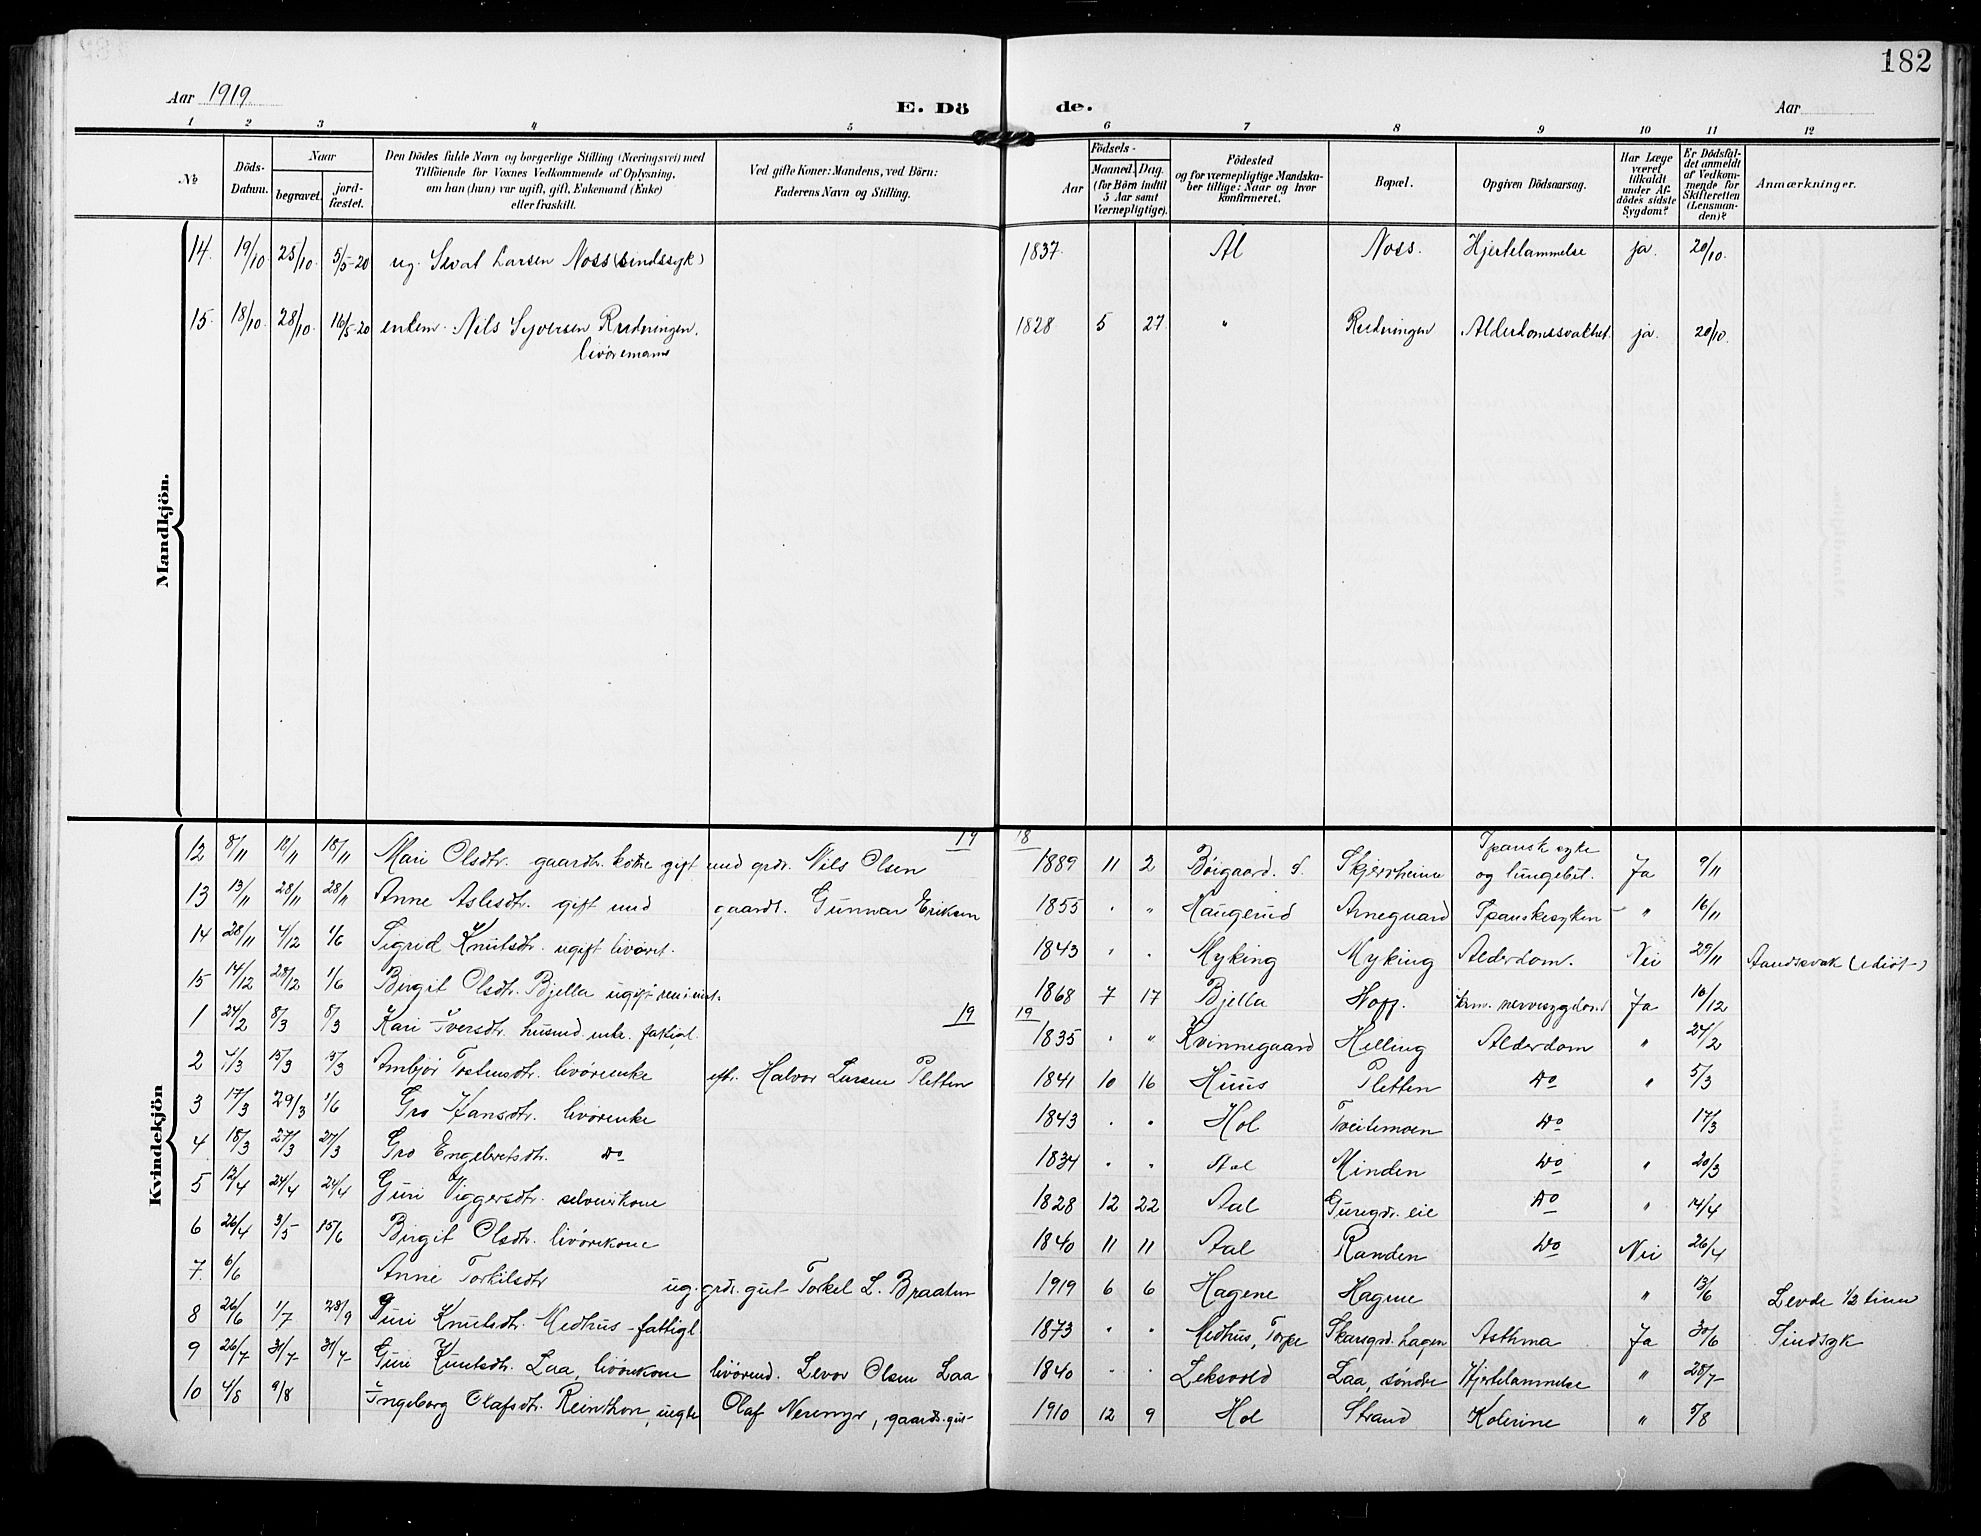 182
Aar 1919
E. Dö
de.
Aar
1 2 3 4 5 6 7 8 9 10 11 12
№
Döds-Datum.
Naar
begravet.
jord-fæstet.
Den Dödes fulde Navn og borgerlige Stilling (Næringsvei) med
Tilföiende for Voxnes Vedkommende af Oplysning,
om han (hun) var ugift, gift, Enkemand (Enke)
eller fraskilt.
Ved gifte Koner: Mandens, ved Börn:
Faderens Navn og Stilling.
Födsels-
Aar
Maaned. Dag.
(for Börn indtil
5 Aar samt
Værnepligtige).
Födested
og for værnepligtige Mandska-
ber tillige: Naar og hvor
konfirmeret.
Bopæl.
Opgiven Dödsaarsag.
Har Læge
været
tilkaldt
under Af-
dödes sidste
Sygdom?
Er Dödsfal-
det anmeldt
af Vedkom-
mende for
Skifteretten
(Lensman-
den)?
Anmærkninger.
Mandkjön.
14. 19/10 25/10. 5/5-20 ug. Sevat Larsen Noss (sindssyk) 1837. Al Noss. Hjertelammelse ja. 20/10.
15. 18/10. 28/10. 16/5-20 enkem. Nils Syversen Rudningen. 1828 5 27. " Rudningen Alderdomssvakhet. ja. 20/10.
livøremann
Kvindekjön
19 18
12 8/11 18/11 18/11 Mari Olsdtr. gaardbr. kone gift med grdr. Nils Olsen 1889 11 2 Böigaard. Skjerrheim Spansk syke og lungebet. Ja 9/11
13 13/11 28/11 28/11 Anne Aslesdtr. gift med gaardbr. Gunnar Eriksen 1855 " " Haugerud Arnegaard Spanskesyken " 16/11
14 28/11 4/12 1/6 Sigrid Knutsdtr. ugift livöret. 1843 " " Myking Myking Alderdom. Nei 29/11 Aandssvak (idiot-)
15 14/12 28/12 1/6 Birgit Olsdtr. Bjella ugift 1868 7 17 Bjella Hoff. krm. nervesygdom Ja 16/12
19 19
1 24/2 8/3 8/3 Kari Iversdtr. husmd. enke. fattigl. 1835 " " Kvinnegaard Helling Alderdom " 24/2
2 4/3 15/3 15/3 Ambjör Tostensdtr. livörenke eft. Halvor Larsen Pletten 1841 10 16 Huus Pletten Do " 5/3
3 17/3 29/3 1/6 Gro Hansdtr. livörenke 1843 " " Hol Tveitemoen Do 17/3
4 18/3 27/3 27/3 Gro Engebretsdtr. Do 1834 " " Aal Minden Do " 20/3
5 12/4 24/4 24/4 Guri Viggersdtr. selveierkone 1828 12 22 Aal Guregdr. eie Do " 14/4
6 26/4 3/5 15/6 Birgit Olsdtr. livörekone 1840 11 11 Aal Randen Do Nei 26/4
7. 6/6 Anne Torkilsdtr ug. grdr. gut Torkel L. Braaten 1919 6 6 Hagene Hagene " 13/6 Levde 1/2 time
8 26/6 1/7 28/9 Guri Knutsdtr. Medhus - fattigl. 1873 " " Medhus, Torpe Skarsgrd. hagen Asthma Ja 30/6 Sindsyk
9 26/7 31/7 31/7 Guri Knutsdtr. Laa, livörekone livöremd. Levor Olsen Laa 1840 " " Leksvold Laa, söndre Hjertelammelse " 28/7
10 4/8 9/8 Ingeborg Olafsdtr. Reinthon, uegte Olaf Neremyr, gaardr. gut- 1910 12 9 Hol Strand Kolerine " 5/8